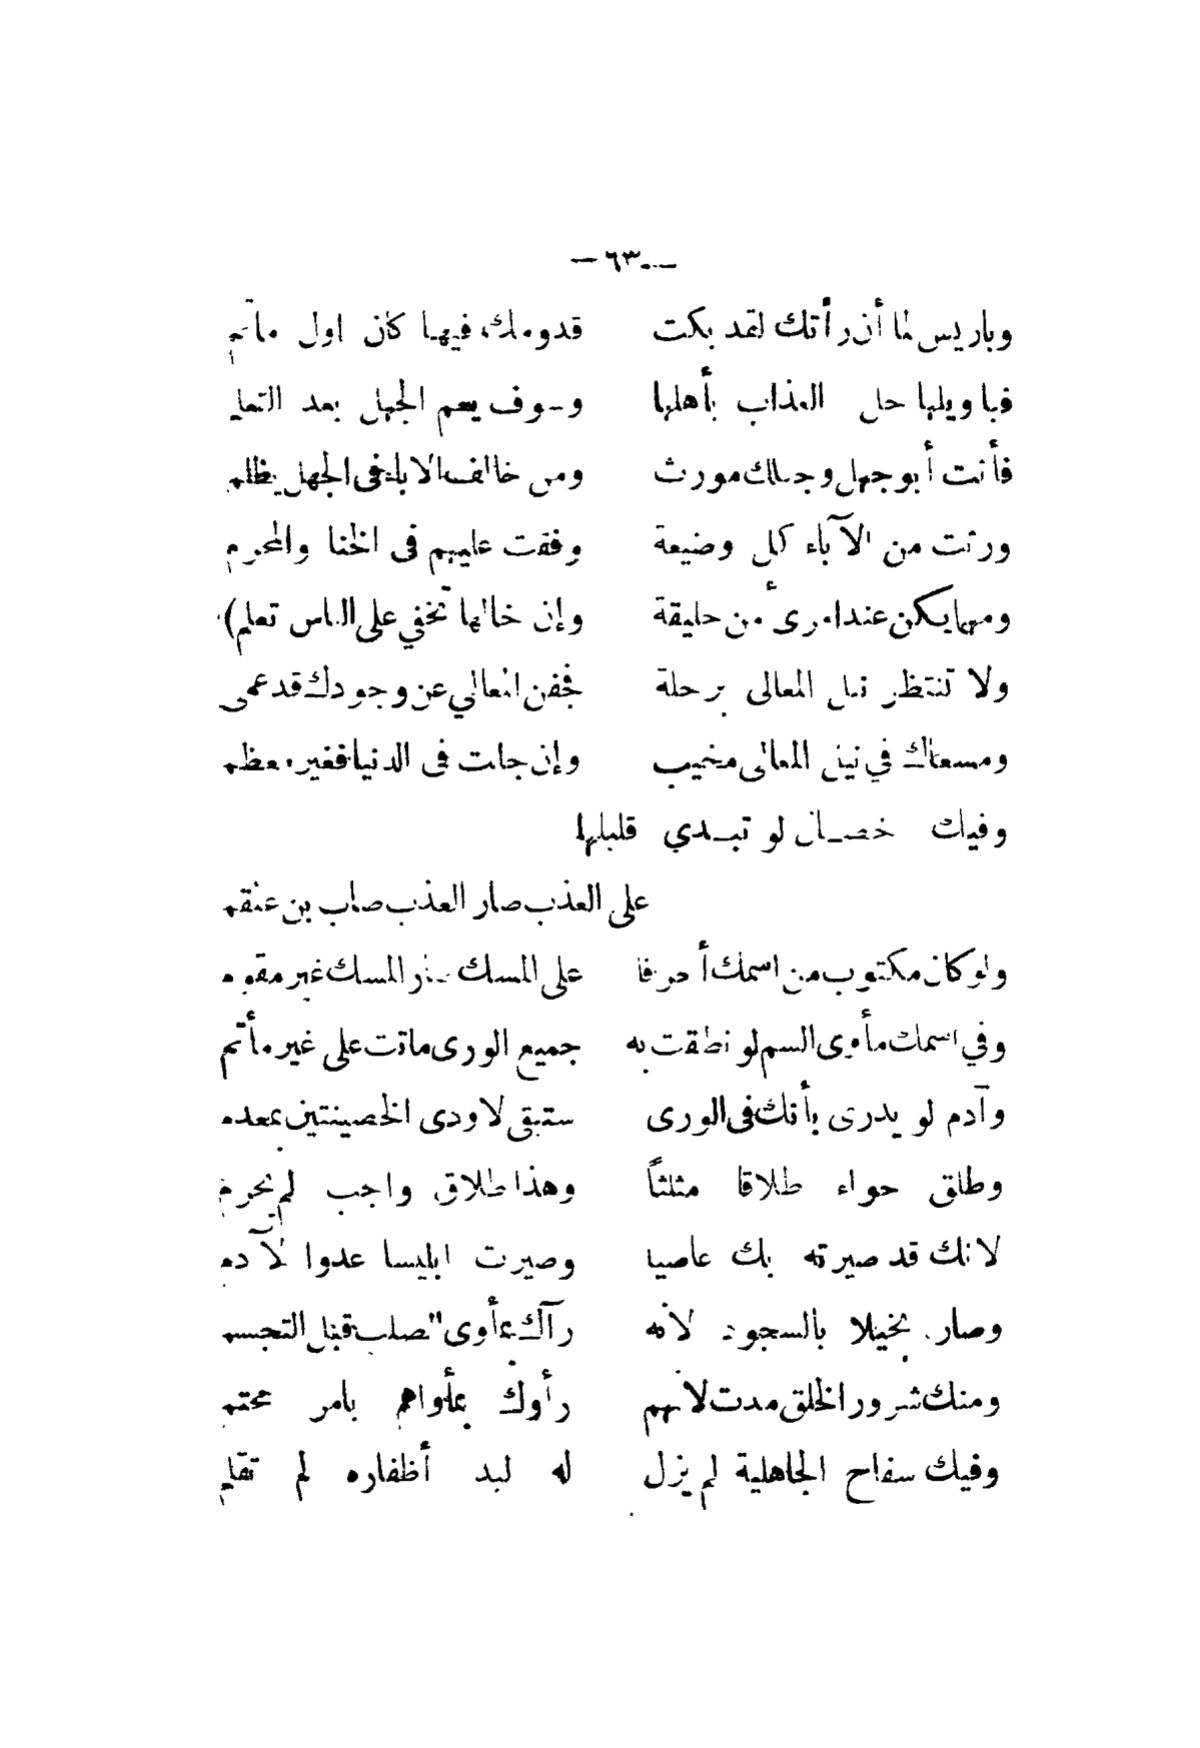 — ٦٣ —
وباريس لما أن رأتك لقد بكت قدومك فيها كان اول مأتم
فيا ويلها حل العذاب بأهلها وسوف يعم الجهل بعد التعلم
فأنت أبو جهل وجهلك مورث ومن خالف الاباء فى الجهل يظلم
ورثت من الآباء كل وضيعة وفقت عليهم فى الخنا والمحرم
ومهما يكن عند امرئ من خليقة وإن خالها تخفي على الناس تعلم)
ولا تنتظر نيل المعالى برحلة فجفن المعالي عن وجودك قد عمى
ومسعاك في نيل المعالى مخيب وإن جلت فى الدنيا فغير معظم
وفيك خصال لو تبدي قليلها
على العذب صار العذب صاب بن عنقم
ولو كان مكتوب من اسمك أحرفا على المسك صار المسك غير مقوم
وفي اسمك مأوى السم لو نطقت به جميع الورى ماتت على غير مأتم
وآدم لو يدرى بأنك فى الورى ستبقى لاودى الخصيتين بمعدم
وطلق حواء طلاقا مثلثاً وهذا طلاق واجب لم يحرم
لانك قد صيرته بك عاصيا وصيرت ابليسا عدوا لآدم
وصار بخيلا بالسجود لأنه رآك بمأوى الصلب قبل التجسم
ومنك شرور الخلق مدت لانهم رأوك بمأواهم بامر محتم
وفيك سفاح الجاهلية لم يزل له لبد أظفاره لم تقلم